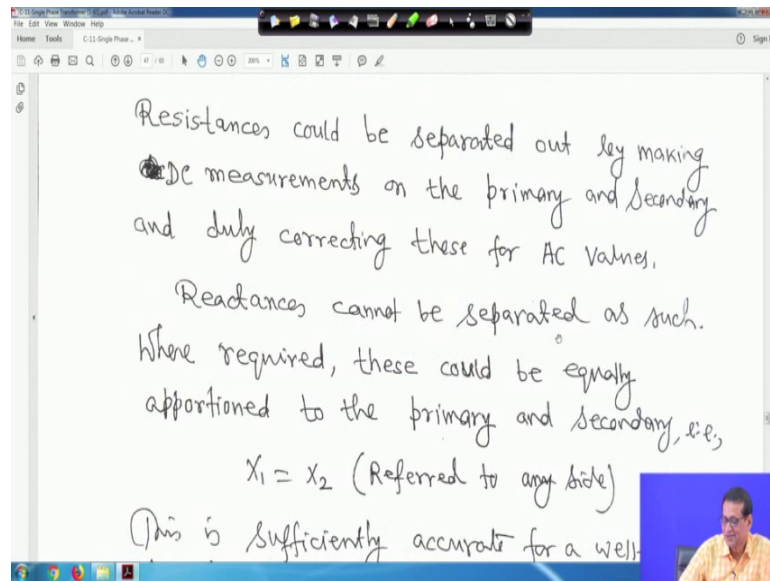 C-11-Single Phase Transformer (5-65).pdf - Adobe Acrobat Reader DC
File Edit View Window Help
Home Tools C-11-Single Phase ... × Sign
47 / 65 200%
Resistances could be separated out by making
DC measurements on the primary and secondary
and duly correcting these for AC values.
Reactances cannot be separated as such.
Where required, these could be equally
apportioned to the primary and secondary, i.e.,
X₁ = X₂ (Referred to any side)
This is sufficiently accurate for a well-